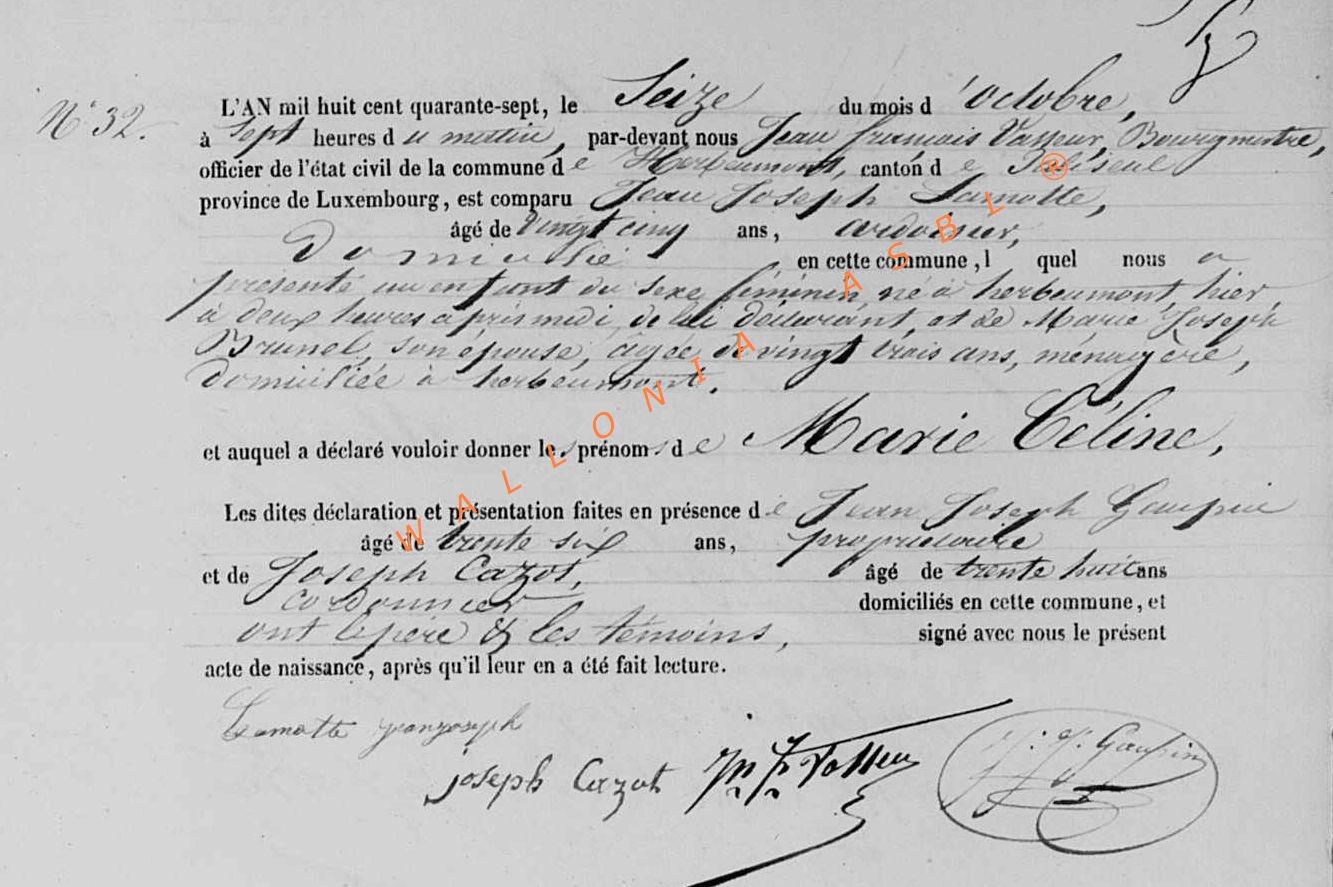 N° 32.
L'AN mil huit cent quarante-sept, le Seize du mois d'octobre,
à Sept heures du matin, par-devant nous Jean françois Vasseur, Bourgmestre,
officier de l'état civil de la commune de Herbeumont, canton de Paliseul
province de Luxembourg, est comparu Jean Joseph Lamotte,
âgé de Vingt cinq ans, ardoisier,
Domicilié en cette commune, l quel nous a
présenté un enfant du sexe féminin, né à herbeumont, hier,
à deux heures après midi, de lui déclarant, et de Marie Joseph
Brunel, son épouse, agée de vingt trois ans, ménagère,
domiciliée à herbeumont.
et auquel a déclaré vouloir donner les prénoms de Marie Céline,
Les dites déclaration et présentation faites en présence de Jean Joseph Gaupin
âgé de trente six ans, propriétaire
et de Joseph Cazot, âgé de trente huit ans
cordonnier domiciliés en cette commune, et
ont le père & les témoins, signé avec nous le présent
acte de naissance, après qu'il leur en a été fait lecture.
Lamotte jeanjoseph
Joseph Cazot Jn Fs Vasseur J. J. Gaupin
WALLONIA ASBL ®